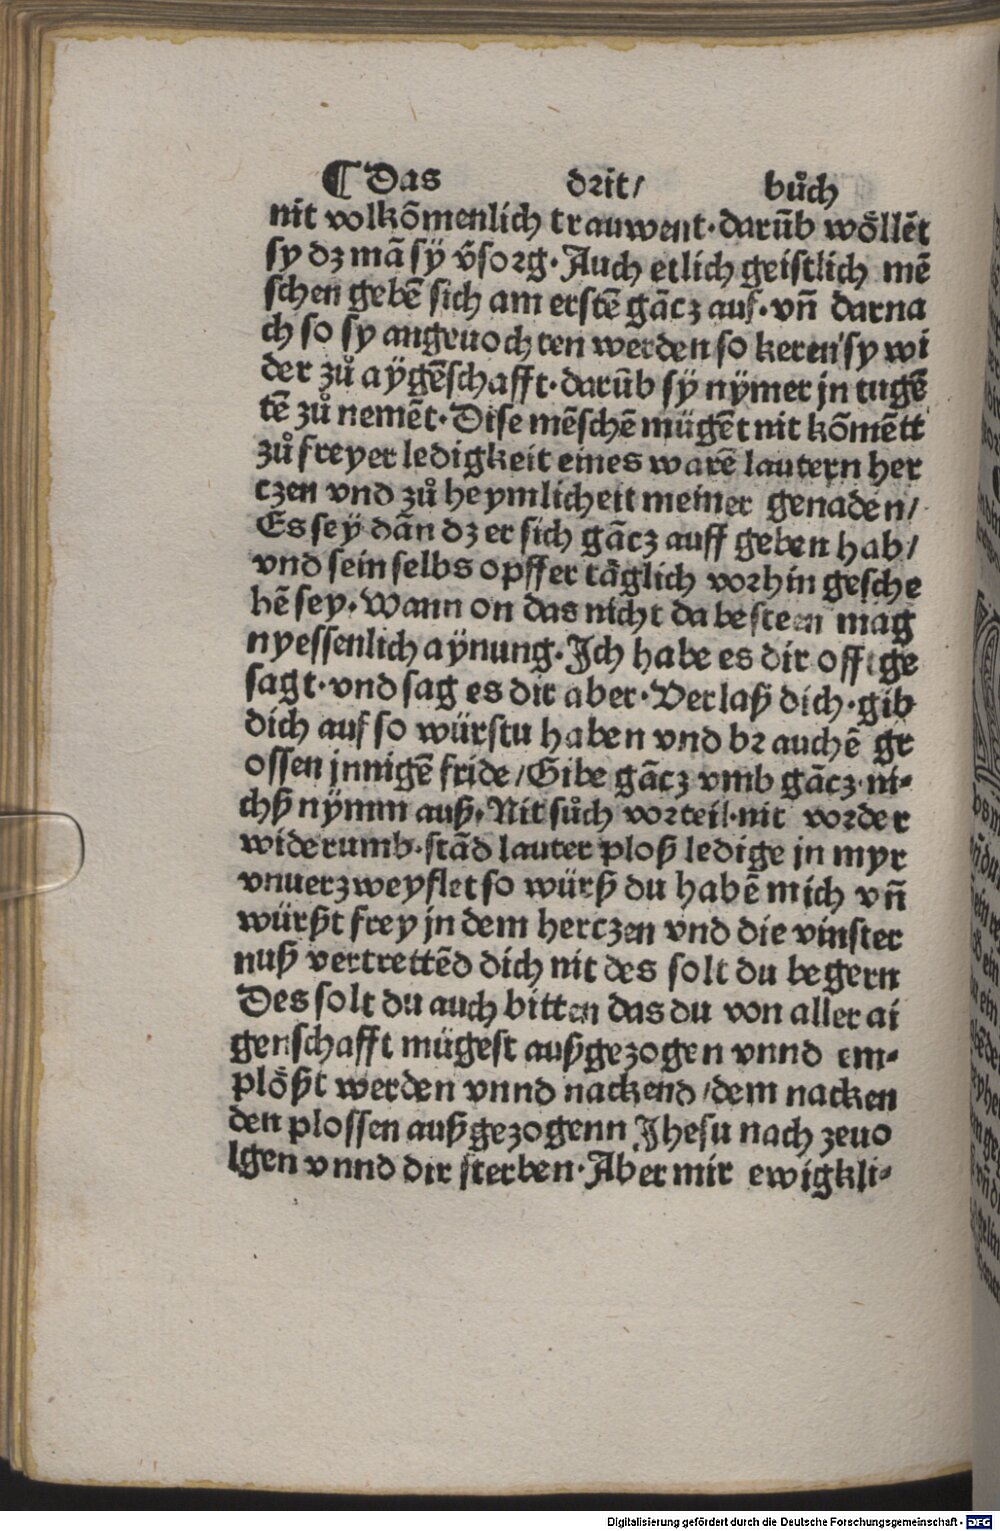 ¶ Das drit/ bůch
nit volkõmenlich trauwent·darũb wo᷑llẽt
sy dz mã sÿ v̈sorg·Auch etlich geistlich mẽ
schen gebẽ sich am erstẽ gãcz auf·vñ darna
ch so sy angeuochten werden so keren sy wi
der zů aÿgẽschafft·darũb sÿ nÿmer jn tugẽ
tẽ zů nemẽt·Dise mẽschẽ mügẽt nit kõmẽtt
zů freyer ledigkeit eines warẽ lautern her
czen vnd zů heymlicheit meiner genaden/
Es seÿ dãn dz er sich gãcz auff geben hab/
vnd sein selbs opffer täglich vorhin gesche
hẽ sey·Wann on das nicht da besteen mag
nyessenlich aÿnung·Jch habe es dir offt ge
sagt·vnd sag es dir aber·Verlaß dich·gib
dich auf so würstu haben vnd brauchẽ gr
ossen jnnigẽ fride/Gibe gãcz vmb gãcz·ni-
chß nÿmm auß·Nit sůch vorteil·nit vorder
widerumb·stãd lauter ploß ledige jn myr
vnuerzweyflet so würß du habẽ mich vñ
würßt frey jn dem herczen vnd die vinster
nuß vertrettẽd dich nit des solt du begern
Des solt du auch bitten das du von aller ai
genschafft mügest außgezogen vnnd em-
plößt werden vnnd nackend/dem nacken
den plossen außgezogenn Jhesu nach zeuo
lgen vnnd dir sterben·Aber mir ewigkli-
Digitalisierung gefördert durch die Deutsche Forschungsgemeinschaft - DFG